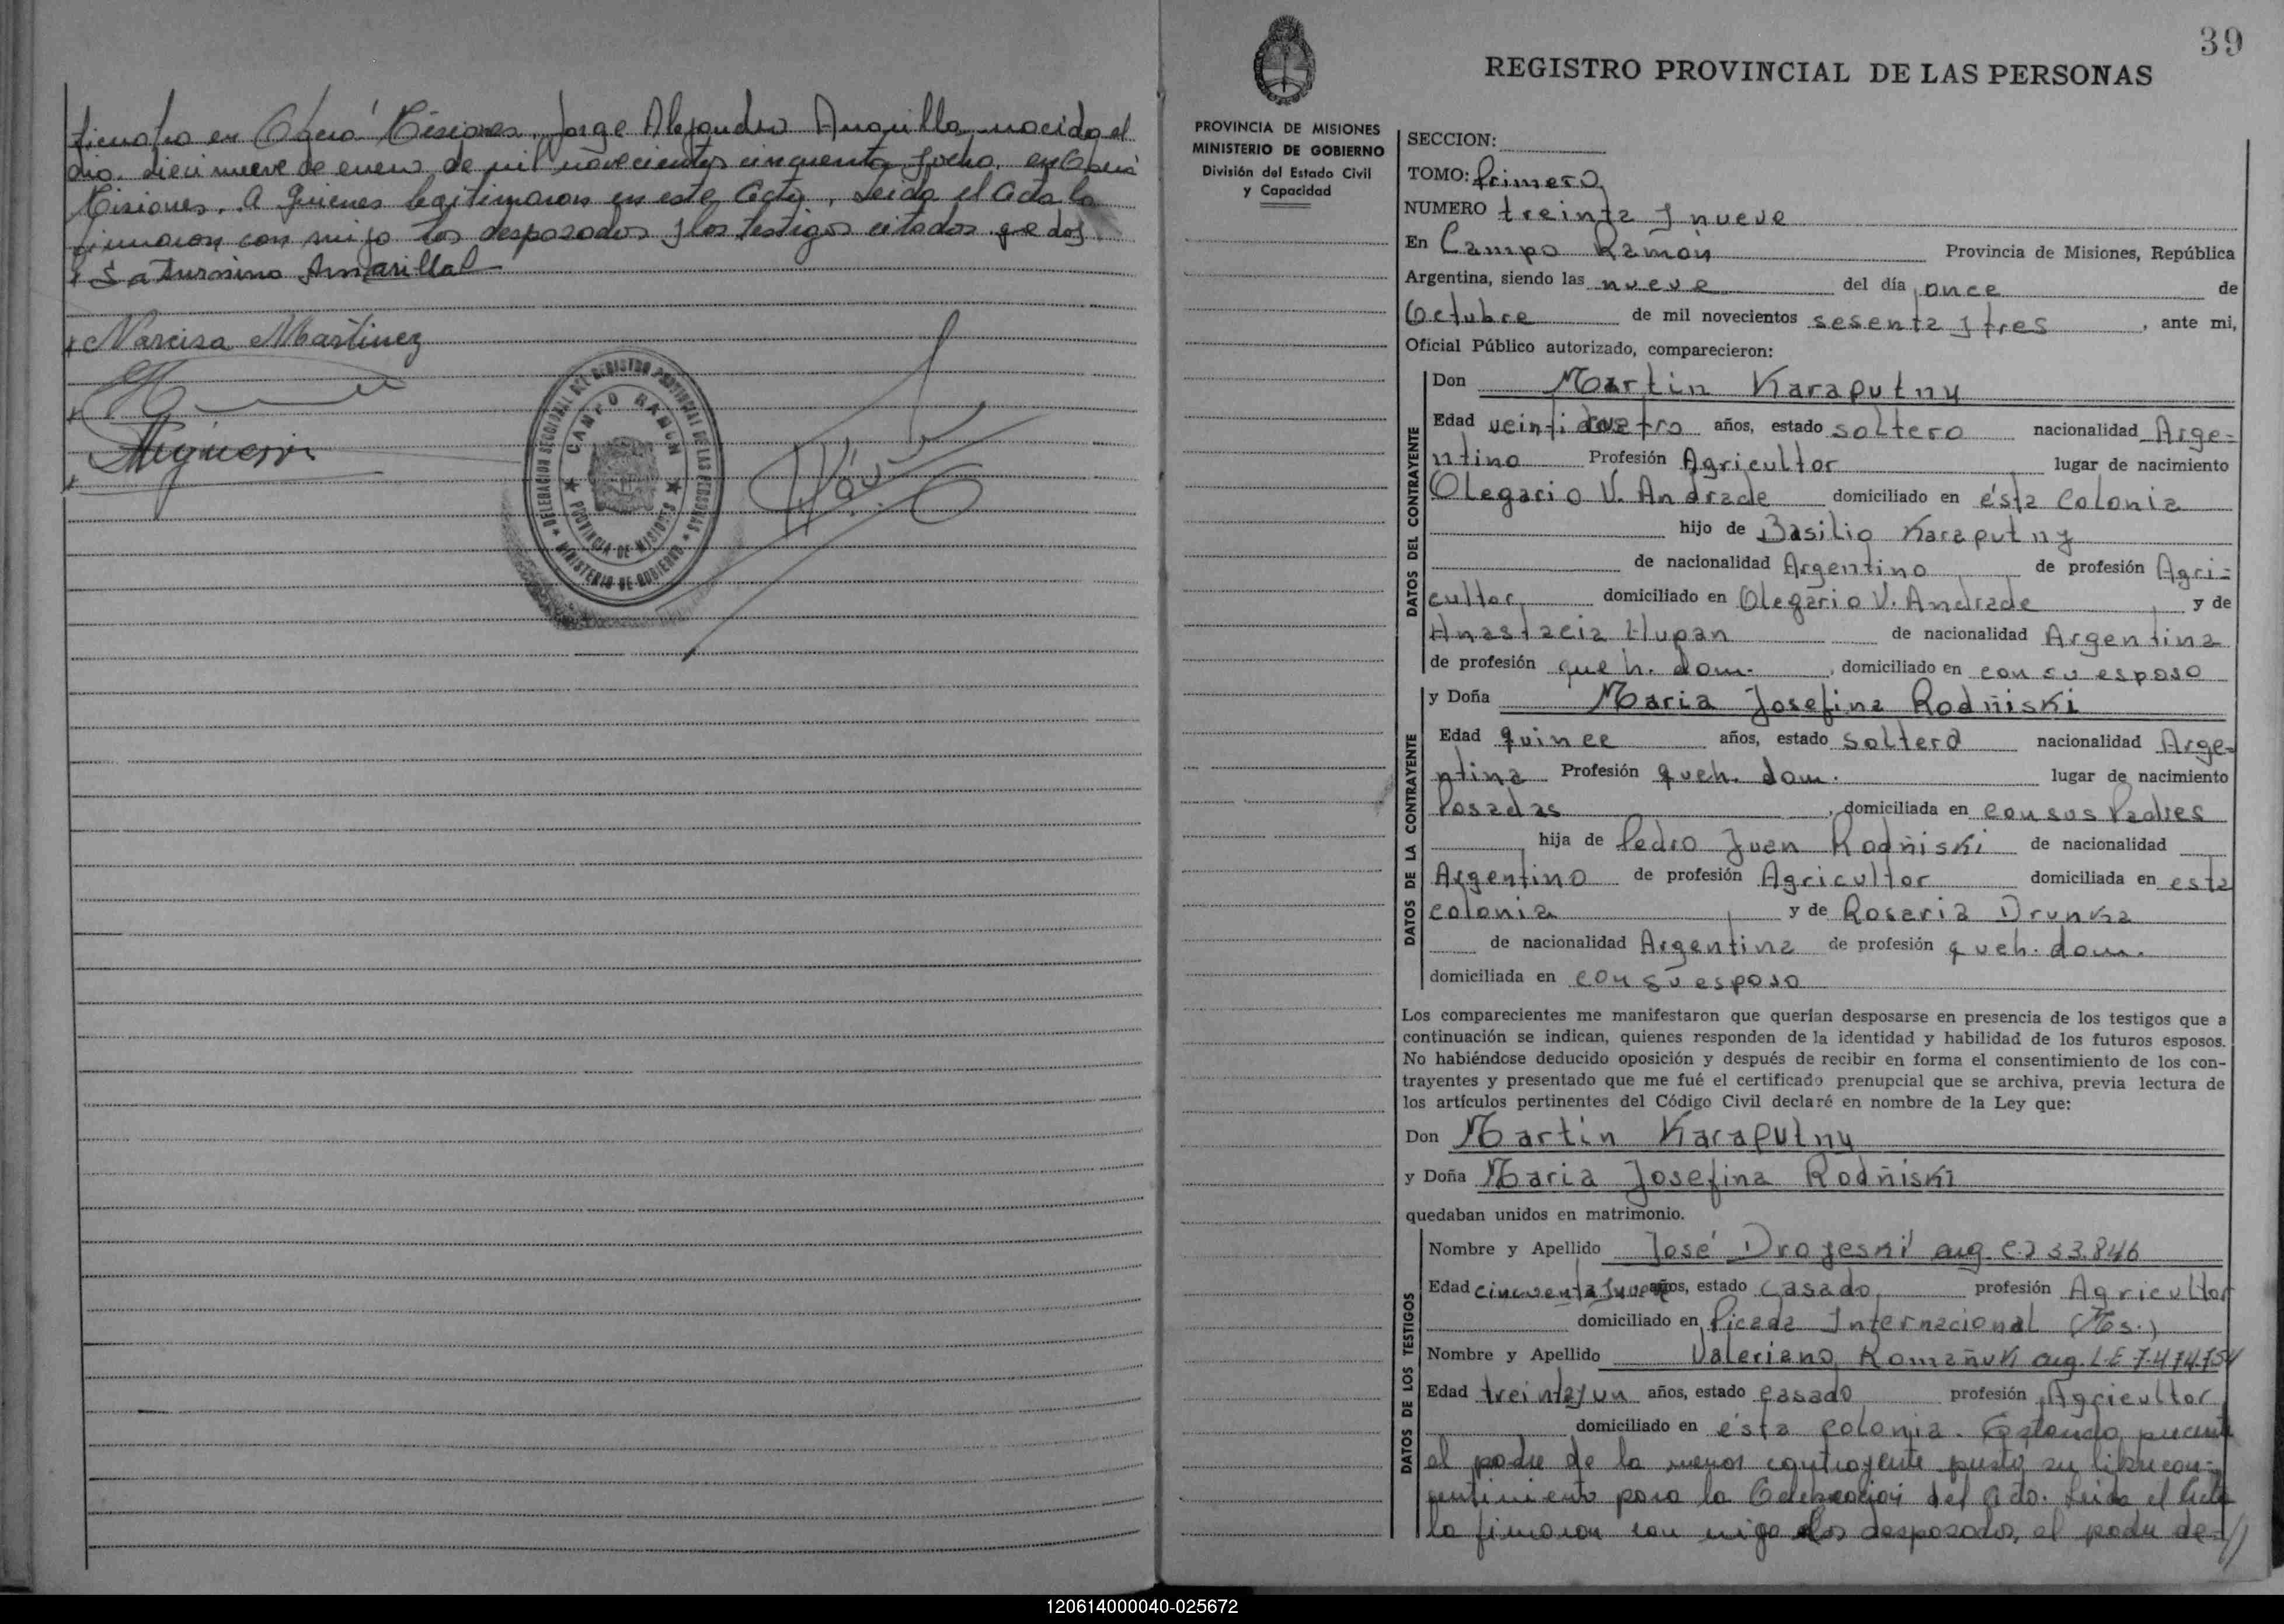 en Oberá Misiones, Jorge Alejandro nacido el
día diecinueve de enero de mil novecientos cincuenta y ocho, en Oberá
Misiones. A quienes legitimaron en este Acto, leida el Acta la
firmaron con migo los desposados y los testigos citados que doy
Saturnino Amarilla
Narcisa Martinez
DELEGACION SECCIONAL DEL REGISTRO PROVINCIAL DE LAS PERSONAS
CAMPO RAMON
PROVINCIA DE MISIONES
MINISTERIO DE GOBIERNO
39
REGISTRO PROVINCIAL DE LAS PERSONAS
PROVINCIA DE MISIONES
MINISTERIO DE GOBIERNO
División del Estado Civil
y Capacidad
SECCION:
TOMO: Primero
NUMERO treinta y nueve
En Campo Ramón Provincia de Misiones, República
Argentina, siendo las nueve del día once de
Octubre de mil novecientos sesenta y tres, ante mi,
Oficial Público autorizado, comparecieron:
DATOS DEL CONTRAYENTE
Don Martin Karaputny
Edad años, estado soltero nacionalidad Arge-
ntino Profesión Agricultor lugar de nacimiento
Olegario V. Andrade domiciliado en ésta Colonia
hijo de Basilio Karaputny
de nacionalidad Argentino de profesión Agri-
cultor domiciliado en Olegario V. Andrade y de
Anastacia Hupan de nacionalidad Argentina
de profesión queh. dom. , domiciliado en con su esposo
DATOS DE LA CONTRAYENTE
y Doña Maria Josefina Rodñiski
Edad quince años, estado soltera nacionalidad Arge-
ntina Profesión queh. dom. lugar de nacimiento
Posadas , domiciliada en con sus Padres
hija de Pedro Juan Rodñiski de nacionalidad
Argentino de profesión Agricultor domiciliada en esta
colonia y de Rosaria Drunka
de nacionalidad Argentina de profesión queh. dom.
domiciliada en con su esposo
Los comparecientes me manifestaron que querían desposarse en presencia de los testigos que a
continuación se indican, quienes responden de la identidad y habilidad de los futuros esposos.
No habiéndose deducido oposición y después de recibir en forma el consentimiento de los con-
trayentes y presentado que me fué el certificado prenupcial que se archiva, previa lectura de
los artículos pertinentes del Código Civil declaré en nombre de la Ley que:
Don Martin Karaputny
y Doña Maria Josefina Rodñiski
quedaban unidos en matrimonio.
DATOS DE LOS TESTIGOS
Nombre y Apellido José Drojeski arg. C.I 33.846
Edad cincuenta y nueve años, estado Casado profesión Agricultor
domiciliado en Picada Internacional (Mes.)
Nombre y Apellido Valeriano Romañuk arg. L.E 7.474.754
Edad treinta y un años, estado casado profesión Agricultor
domiciliado en ésta colonia. Estando presente
el padre de la menor contrayente presta su libre con-
sentimiento para la Celebracion del Acto. Leida el Acta
la firmaron con migo los desposados, el padre de //
120614000040-025672